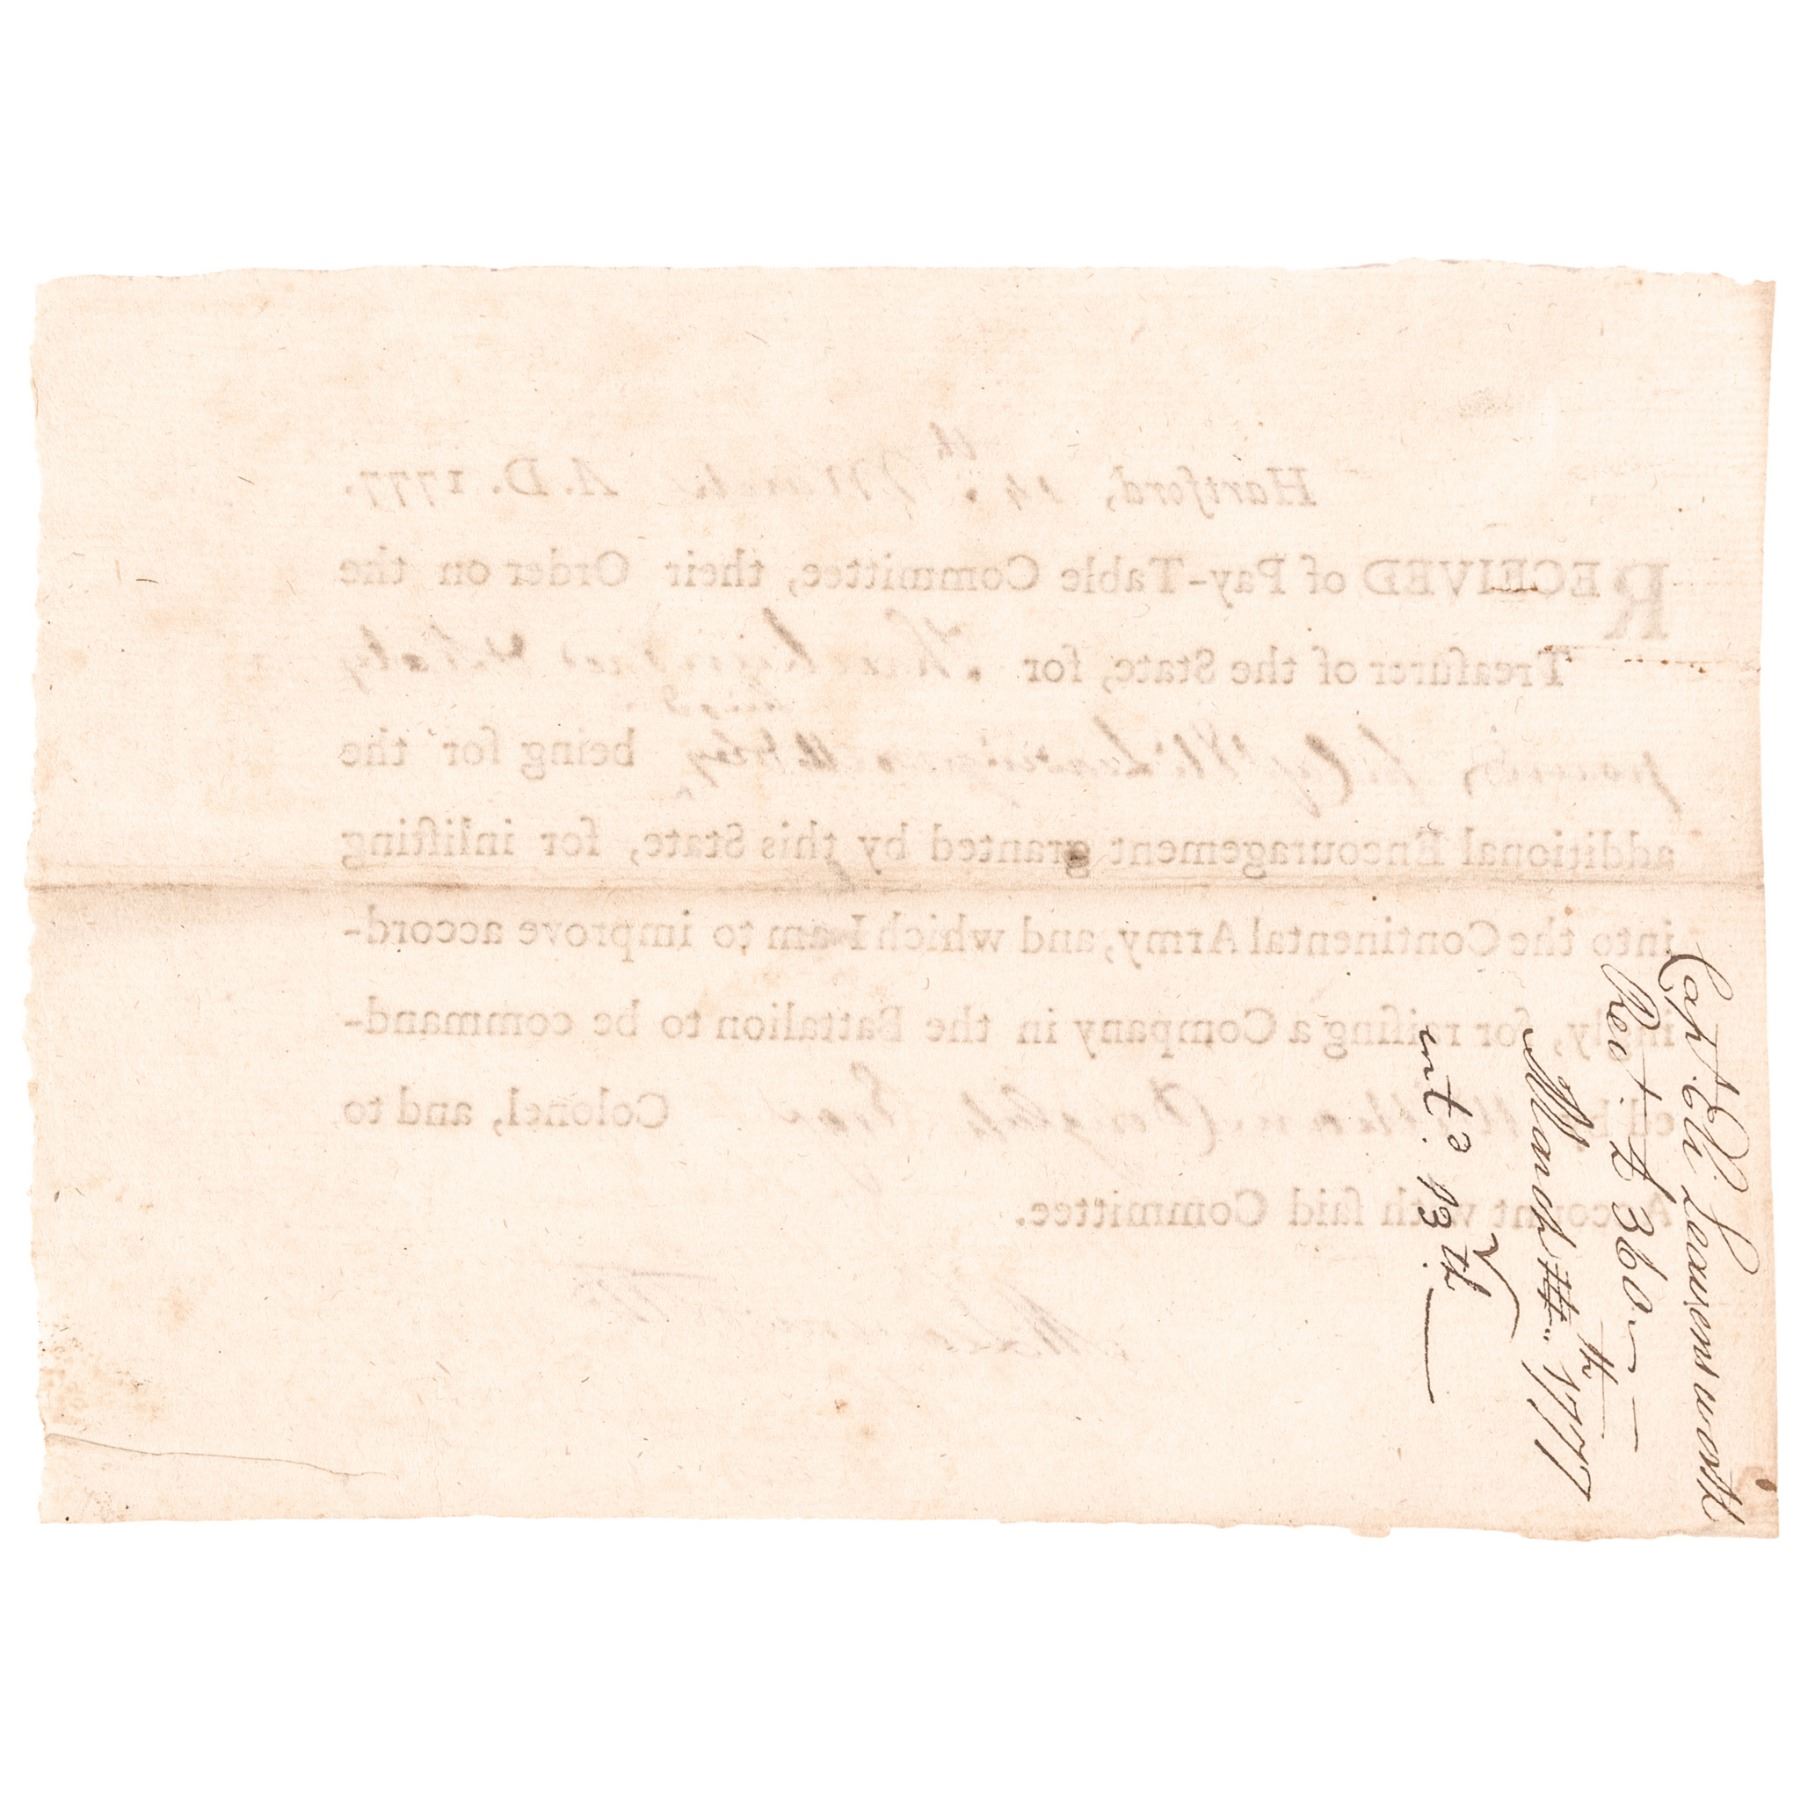 Capt. Eli Leavensworth
Rect. £ 360
March 14th. 1777
int.º 13th
Hartford, 14th March A. D. 1777.
RECEIVED of Pay-Table Committee, their Order on the
Treaſurer of the State, for Three hundred & Sixty
pounds, being for the
additional Encouragement granted by this State, for inliſting
into the Continental Army, and which I am to improve accord-
ingly, for raiſing a Company in the Battalion to be command-
ed by William Douglaſs Colonel, and to
Account with ſaid Committee.